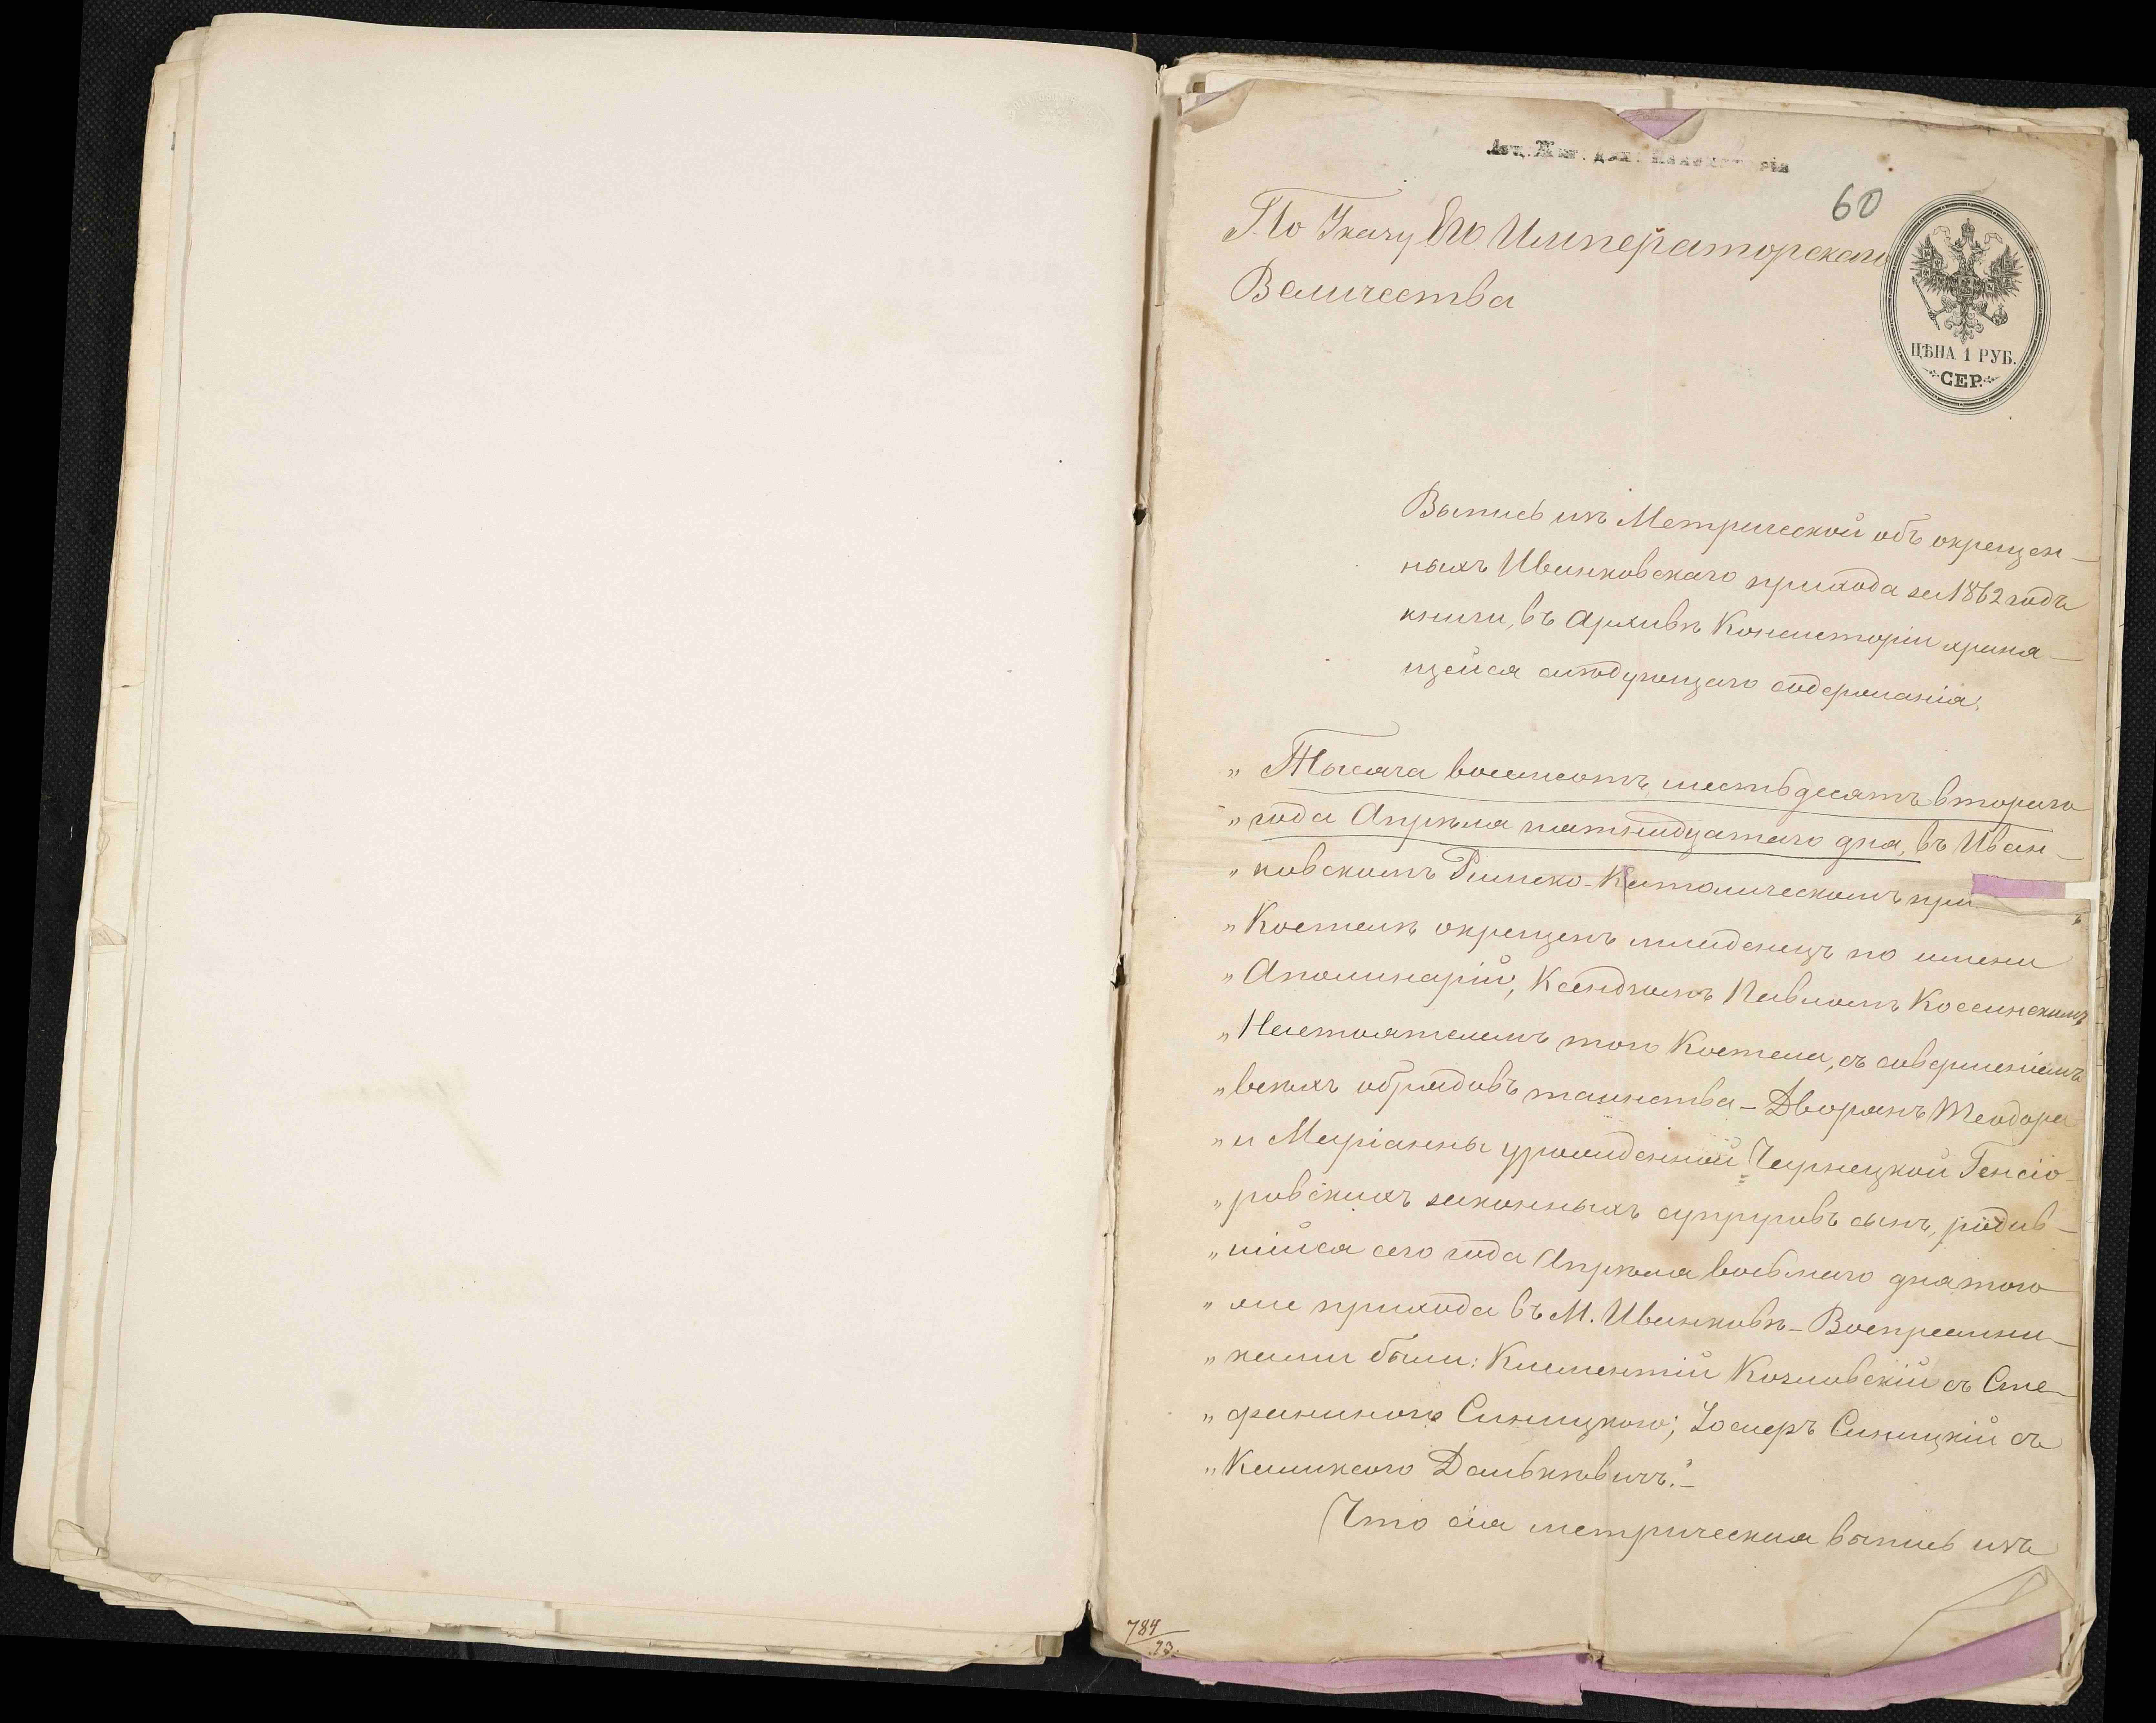 Луц. Жит. дух. Консисторія
60
По Указу Его Императорскаго
Величества
ЦѢНА 1 РУБ.
СЕР.
Выпись изъ Метрической объ окрещен-
ныхъ Иванковскаго прихода за 1862 годъ
книги, въ Архивѣ Консисторіи храня-
щейся слѣдующаго содержанія:
„ Тысяча восемьсотъ шестьдесятъ втораго
„ года Апрѣля пятнадцатаго дня, въ Иван-
„ ковскомъ Римско-Католическомъ при
„ Костелѣ окрещенъ младенецъ по имени
„ Аполинарій, Ксендзомъ Павломъ Коссинскимъ
„ Настоятелемъ того Костела, съ совершеніемъ
„ всѣхъ обрядовъ таинства – Дворянъ Теодора
„ и Маріанны урожденной Чернецкой Генсіо-
„ ровскихъ законныхъ супруговъ сынъ, родив-
„ шійся сего года Апрѣля восьмаго дня того
„ же прихода въ М. Иванковѣ – Воспреемни-
„ ками были: Климентій Козловскій съ Сте-
„ фаниною Синицкою; Іосифъ Синицкій съ
„ Камиллою Далькевичъ." –
Что сія метрическая выпись изъ
784
73.